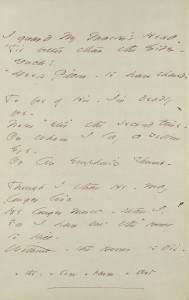 I guard My Master's Head -
'Tis better than the Eider -
Duck's
Deep Pillow - to have shared -
To foe of His - I'm deadly
foe -
None stir the second time -
On whom I lay a Yellow
Eye -
Or an emphatic Thumb -
Though I than He - may
longer live
He longer must - than I -
For I have but the power
to kill,
Without - the power to die -
the - + low + harm + art